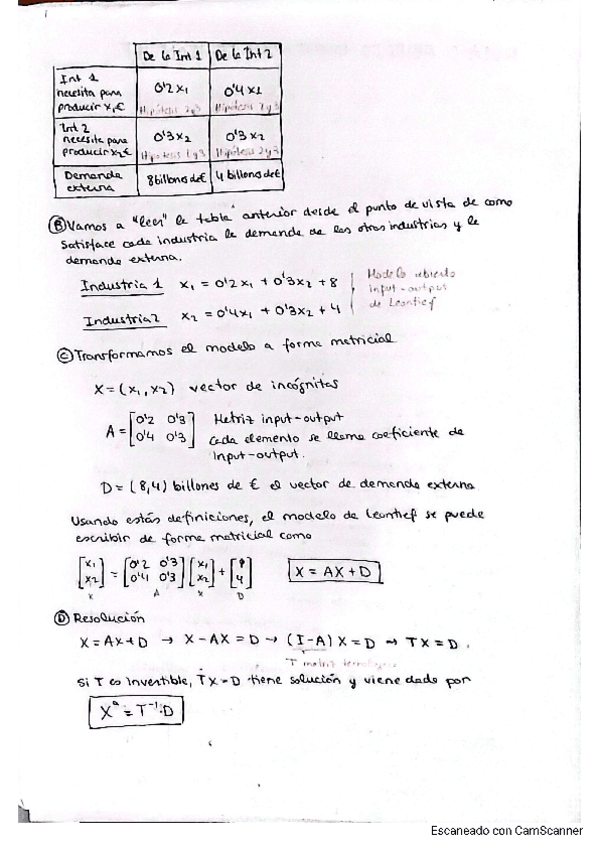 De la Int 1 De la Int 2
Int 1
necesita para
producir x₁€
0'2x₁ 0'4x1
Hipótesis 2 y 3 Hipótesis 2 y 3
Int 2
necesita para
producir x2€
0'3x2 0'3x2
Hipotesis 1 y 3 Hipótesis 2 y 3
Demanda
externa
8 billones de€ 4 billones de€
Ⓑ Vamos a "leer" la tabla anterior desde el punto de vista de como
satisface cada industria la demanda de las otras industrias y la
demanda externa.
Industria 1 x₁ = 0'2x₁ + 0'3x₂ + 8
Industria 2 x₂ = 0'4x₁ + 0'3x₂ + 4
Modelo abierto
input-output
de Leontief
Ⓒ Transformamos el modelo a forma matricial
X = (x₁, x₂) vector de incógnitas
A = [0'2 0'3
0'4 0'3]
Matriz input-output
Cada elemento se llama coeficiente de
input-output.
D = (8,4) billones de € el vector de demanda externa
Usando estás definiciones, el modelo de Leontief se puede
escribir de forma matricial como
[x₁ x₂] = [0'2 0'3 0'4 0'3] [x₁ x₂] + [8 4] X = AX + D
X A X D
Ⓓ Resolución
X = AX + D → X - AX = D → (I-A) X = D → TX = D.
T matriz tecnológica
Si T es invertible, TX = D tiene solución y viene dado por
X* = T⁻¹·D
Escaneado con CamScanner